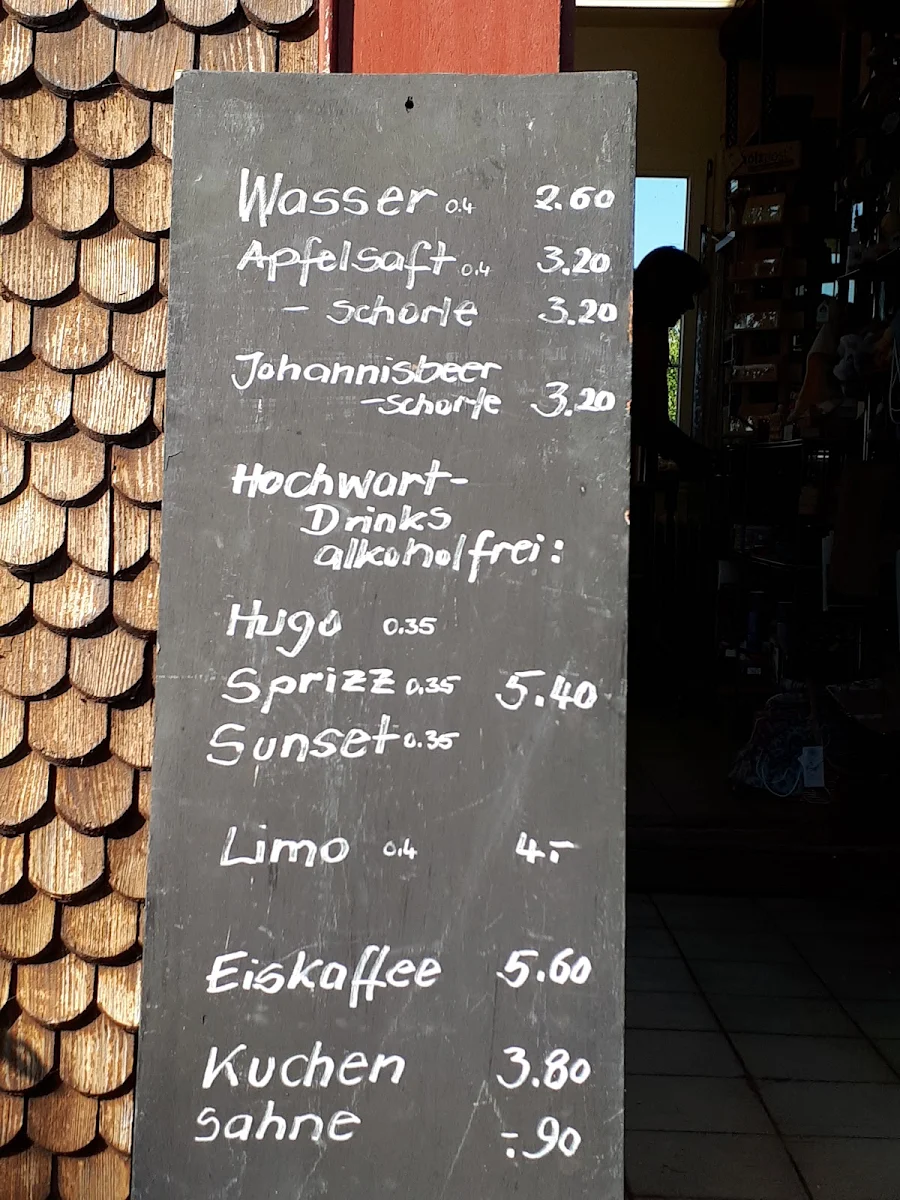 Wasser 0.4 2.60
Apfelsaft 0.4 3.20
- schorle 3.20
Johannisbeer
-schorle 3.20
Hochwart-
Drinks
alkoholfrei:
Hugo 0.35
Sprizz 0.35 5.40
Sunset 0.35
Limo 0.4 4.-
Eiskaffee 5.60
Kuchen 3.80
sahne -.90